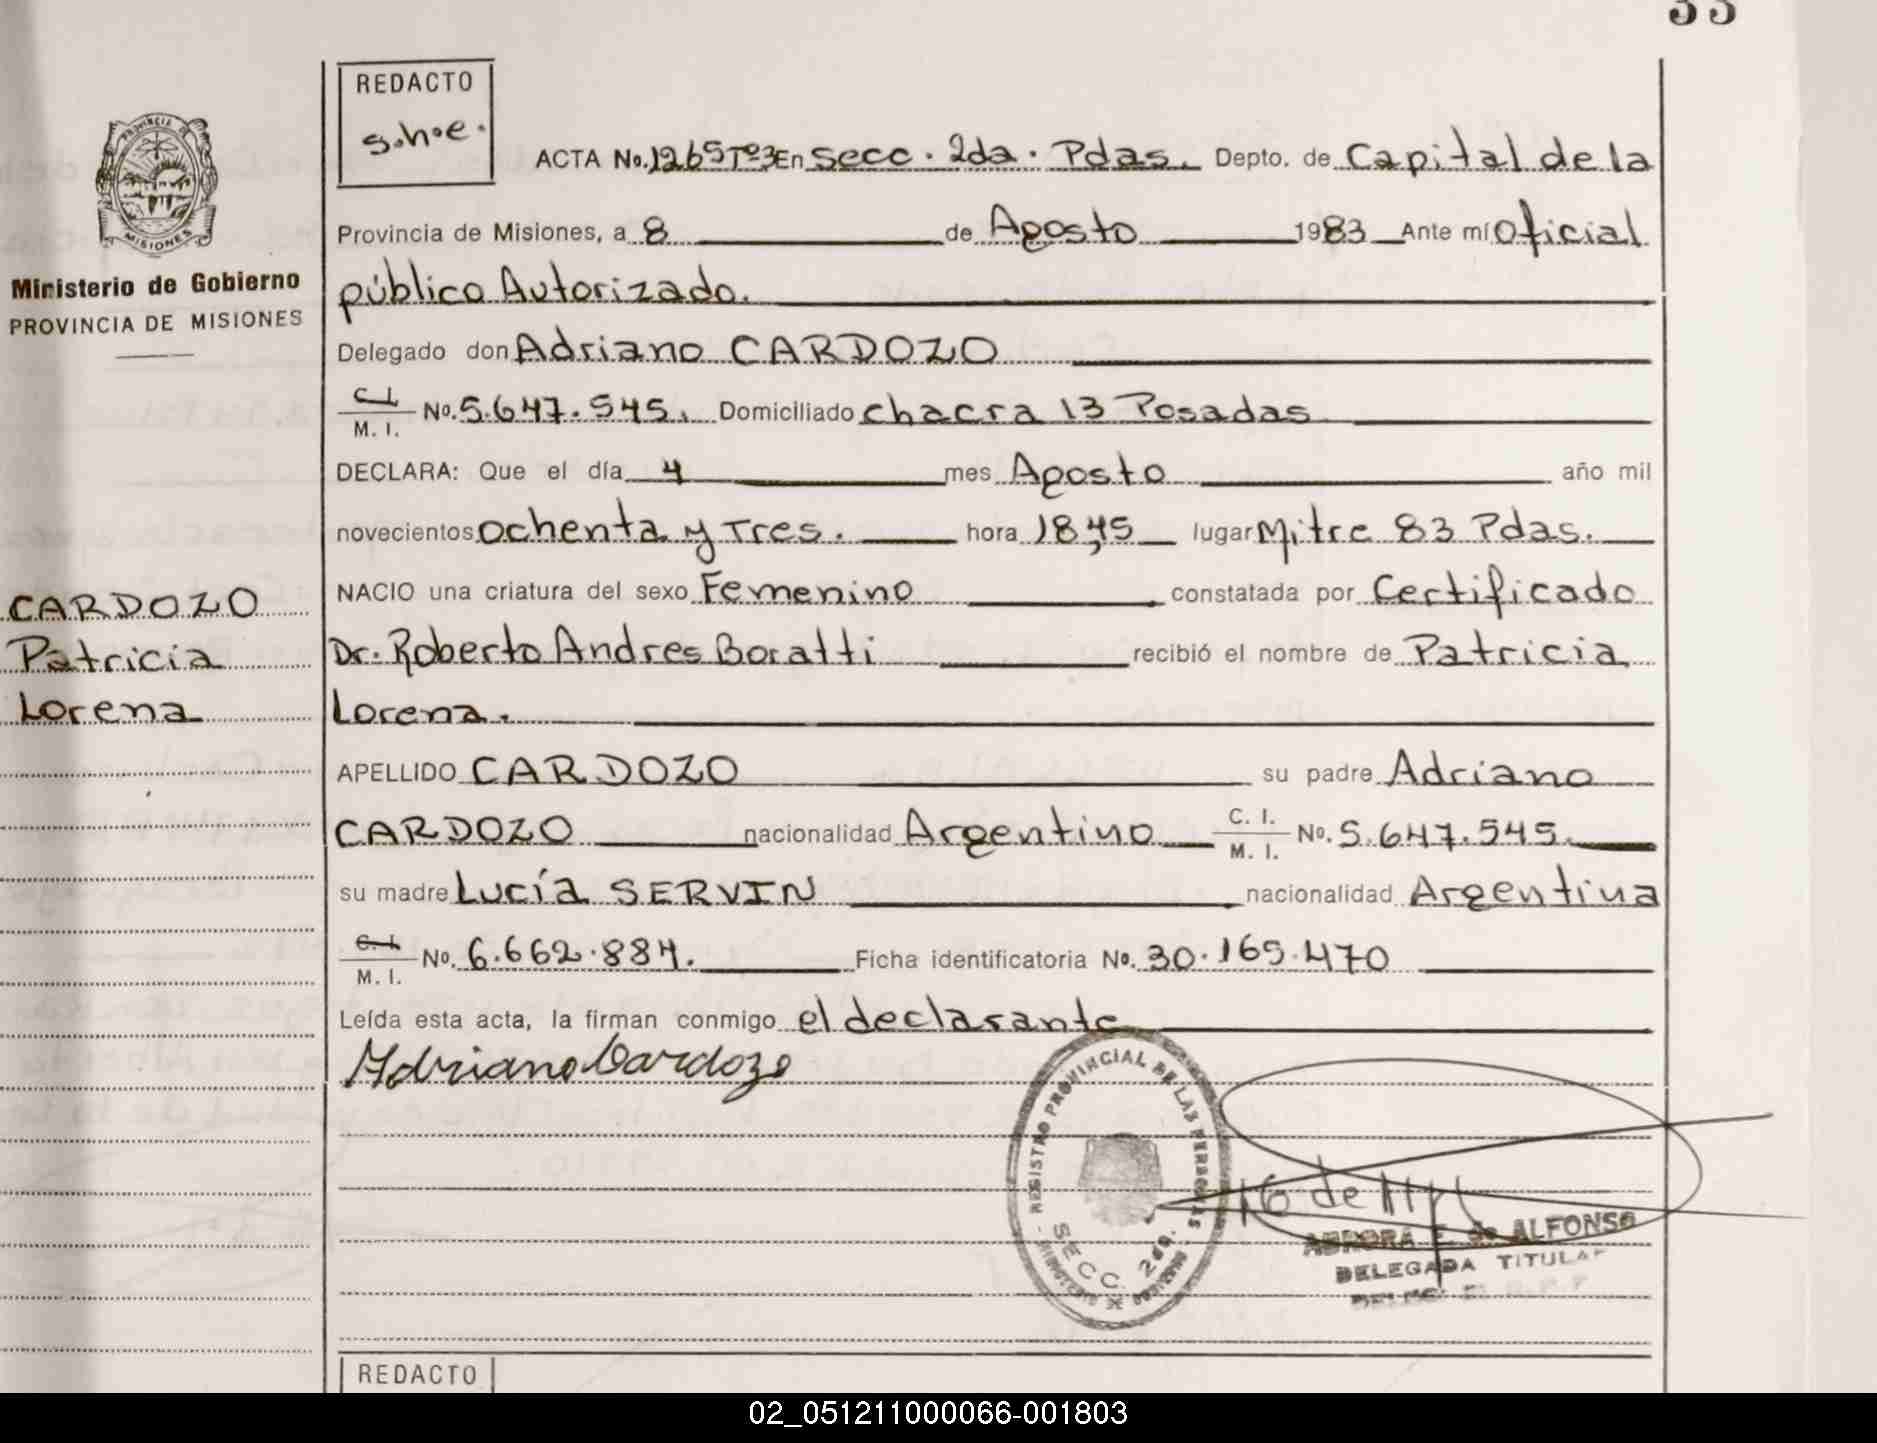 33
REDACTO
s.h.e.
ACTA No. 1265 Tº3 En Secc. 2da. Pdas. Depto. de Capital de la
PROVINCIA DE
MISIONES
Provincia de Misiones, a 8 de Agosto 1983 Ante mí Oficial
Ministerio de Gobierno
PROVINCIA DE MISIONES
público Autorizado.
Delegado don Adriano CARDOZO
C.I.
M. I. No. 5.647.545. Domiciliado chacra 13 Posadas
DECLARA: Que el día 4 mes Agosto año mil
novecientos ochenta y Tres. hora 18,45 lugar Mitre 83 Pdas.
NACIO una criatura del sexo Femenino constatada por Certificado
CARDOZO
Patricia
Lorena
Dr. Roberto Andres Boratti recibió el nombre de Patricia
Lorena.
APELLIDO CARDOZO su padre Adriano
CARDOZO nacionalidad Argentino C. I. M. I. No. 5.647.545.
su madre Lucía SERVIN nacionalidad Argentina
C. I.
M. I. No. 6.662.884. Ficha identificatoria No. 30.165.470
Leída esta acta, la firman conmigo el declarante
Adriano Cardozo
REGISTRO PROVINCIAL DE LAS PERSONAS
SECC. 2da.
AURORA E. de ALFONSO
DELEGADA TITULAR
REDACTO
02_051211000066-001803